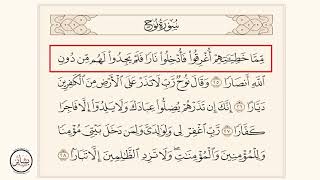 سُورَةُ نُوحٍ
مِّمَّا خَطِيٓـَٔـٰتِهِمْ أُغْرِقُوا۟ فَأُدْخِلُوا۟ نَارًا فَلَمْ يَجِدُوا۟ لَهُم مِّن دُونِ
ٱللَّهِ أَنصَارًا ٢٥ وَقَالَ نُوحٌ رَّبِّ لَا تَذَرْ عَلَى ٱلْأَرْضِ مِنَ ٱلْكَـٰفِرِينَ
دَيَّارًا ٢٦ إِنَّكَ إِن تَذَرْهُمْ يُضِلُّوا۟ عِبَادَكَ وَلَا يَلِدُوٓا۟ إِلَّا فَاجِرًا
كَفَّارًا ٢٧ رَّبِّ ٱغْفِرْ لِى وَلِوَٰلِدَىَّ وَلِمَن دَخَلَ بَيْتِىَ مُؤْمِنًا
وَلِلْمُؤْمِنِينَ وَٱلْمُؤْمِنَـٰتِ وَلَا تَزِدِ ٱلظَّـٰلِمِينَ إِلَّا تَبَارًا ٢٨